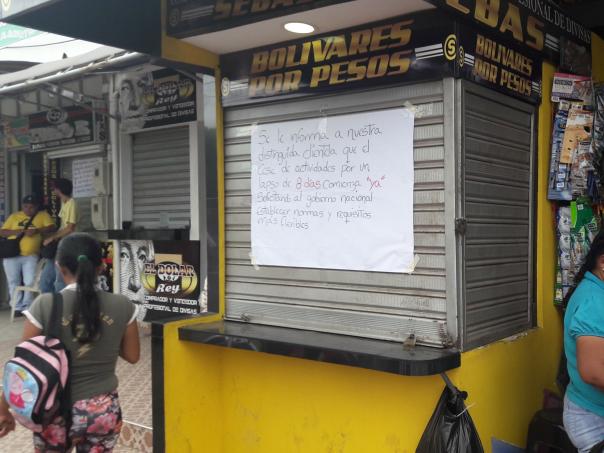 SEBAS
BOLIVARES
POR PESOS
EBAS
PROFESIONAL DE DIVISAS
BOLIVARES
POR PESOS
Se le informa a nuestra
distinguida clientela que el
Cese de actividades por un
lapso de 8 dias Comienza "ya"
Solicitando al gobierno nacional
establecer normas y requisitos
mas flexibles
EL DOLAR
Rey
EL DOLAR
Rey
COMPRADOR Y VENDEDOR
PROFESIONAL DE DIVISAS